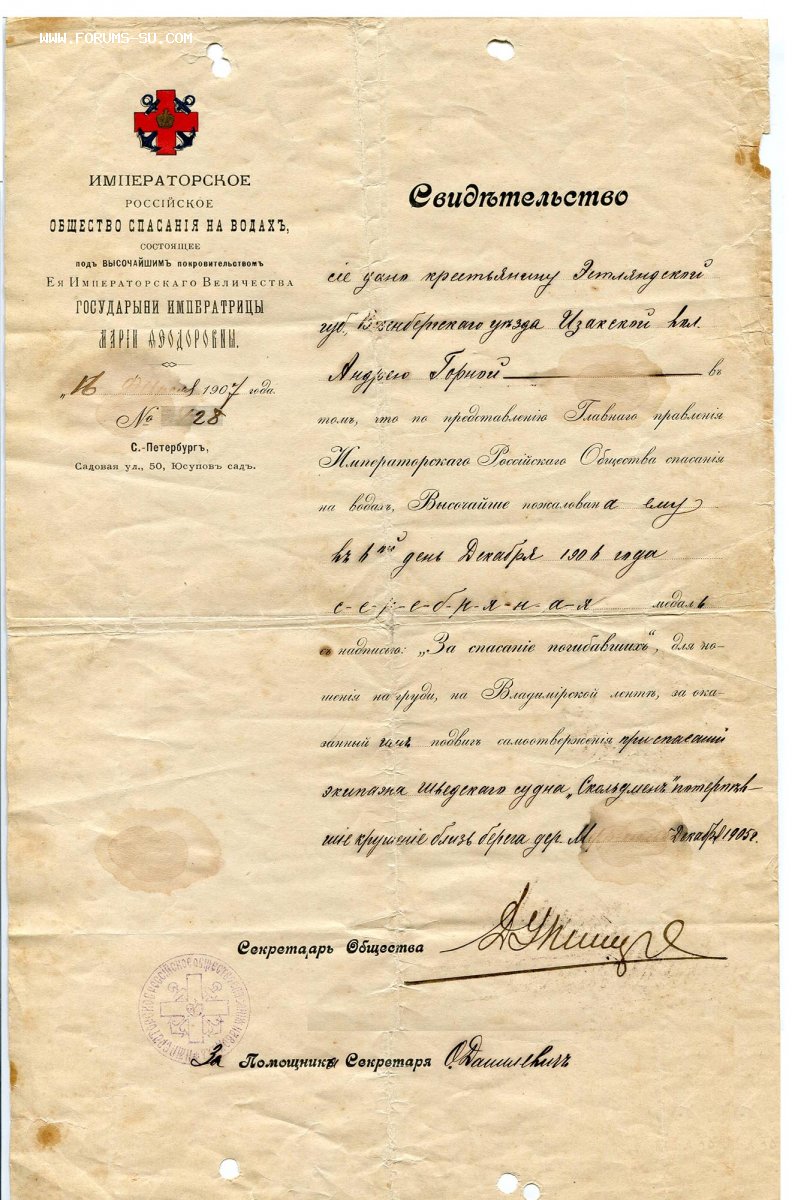 WWW.FORUMS-SU.COM
ИМПЕРАТОРСКОЕ
РОССІЙСКОЕ
ОБЩЕСТВО СПАСАНІЯ НА ВОДАХЪ,
СОСТОЯЩЕЕ
подъ ВЫСОЧАЙШИМЪ покровительствомъ
Ея Императорскаго Величества
ГОСУДАРЫНИ ИМПЕРАТРИЦЫ
МАРІИ ѲЕОДОРОВНЫ.
„16 1907 года.
№ 128
С.-Петербургъ,
Садовая ул., 50, Юсуповъ садъ.
Свидѣтельство
сіе дано крестьянину Эстляндской
губ., Везенбергскаго уѣзда Изакской вол.
Андрею Горной въ
томъ, что по представленію Главнаго правленія
Императорскаго Россійскаго Общества спасанія
на водахъ, Высочайше пожалована ему
въ 6ый день Декабря 1906 года
с-е-р-е-б-р-я-н-а-я медаль
съ надписью: „За спасаніе погибавшихъ“, для но-
шенія на груди, на Владимірской лентѣ, за ока-
занный имъ подвигъ самоотверженія при спасаніи
экипажа Шведскаго судна „Скольдменъ“ потерпѣв-
шіе крушеніе близь берега дер. Декабря 1905 г.
Секретарь Общества
За Помощника Секретаря О. Данилевичъ